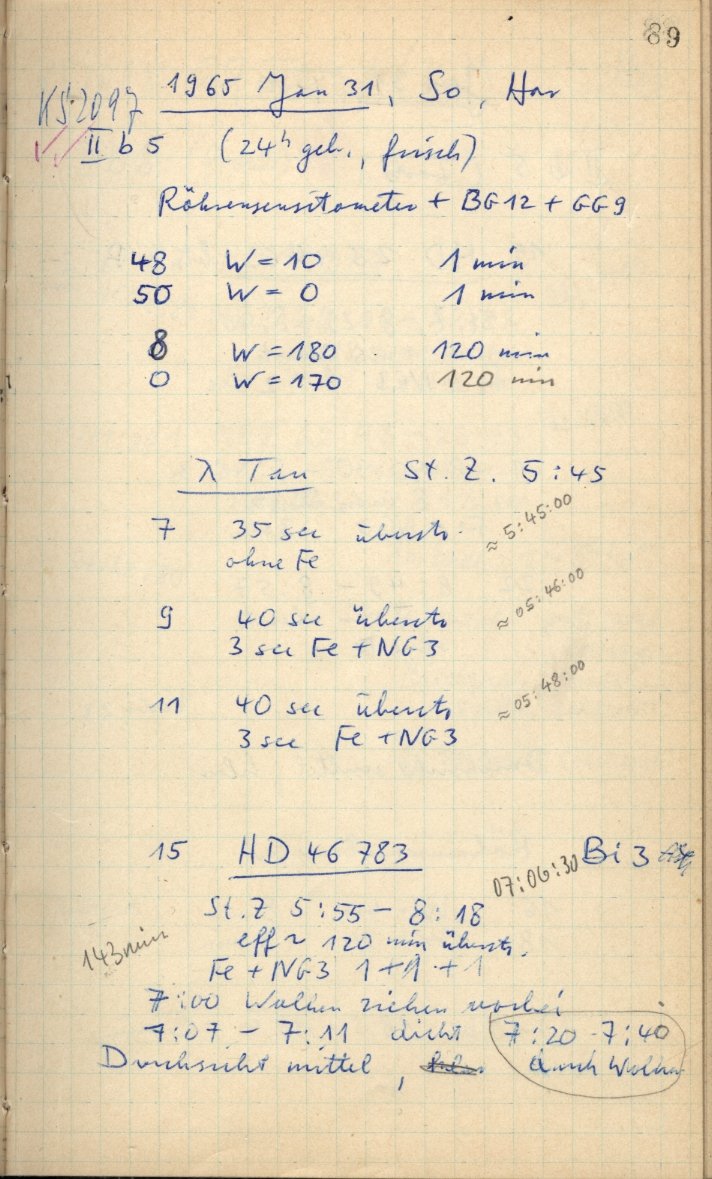 89
KS 2097
1965 Jan 31, So, Har
II b 5 (24h geb., frisch)
Röhrensensitometer + BG12 + GG9
48 W = 10 1 min
50 W = 0 1 min
8 W = 180 120 min
0 W = 170 120 min
λ Tau St. Z. 5:45
7 35 sec überstr. ≈ 5:45:00
ohne Fe
9 40 sec überstr ≈ 05:46:00
3 sec Fe + NG3
11 40 sec überstr ≈ 05:48:00
3 sec Fe + NG3
15 HD 46 783 07:06:30 Bi 3
St. Z 5:55 – 8:18
143 min eff ~ 120 min überstr.
Fe + NG3 1 + 1 + 1
7:00 Wolken ziehen vorbei
7:07 – 7:11 dicht 7:20 - 7:40
Durchsicht mittel, durch Wolken